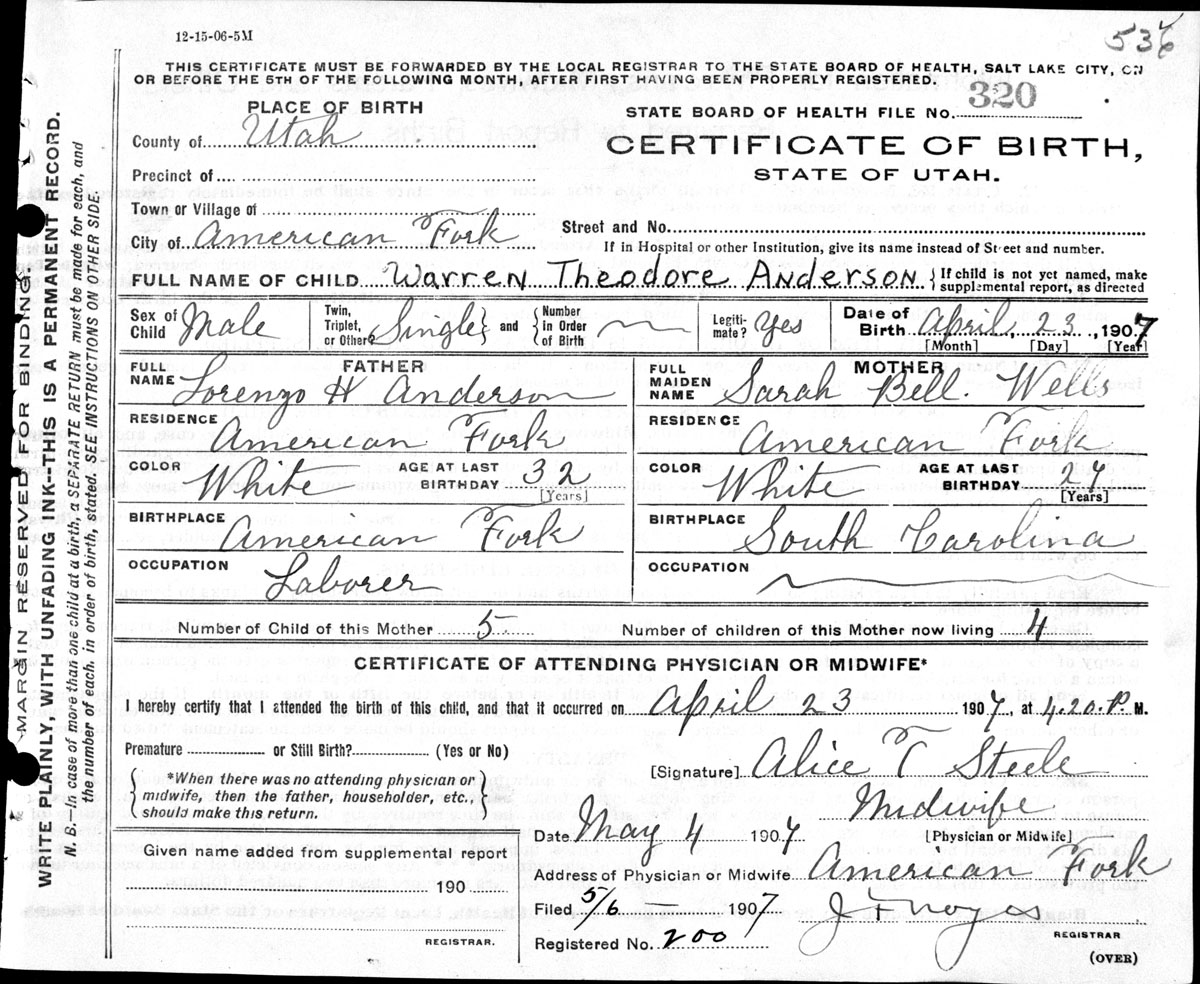 12-15-06-5M
536
THIS CERTIFICATE MUST BE FORWARDED BY THE LOCAL REGISTRAR TO THE STATE BOARD OF HEALTH, SALT LAKE CITY, ON
OR BEFORE THE 5TH OF THE FOLLOWING MONTH, AFTER FIRST HAVING BEEN PROPERLY REGISTERED.
MARGIN RESERVED FOR BINDING.
WRITE PLAINLY, WITH UNFADING INK--THIS IS A PERMANENT RECORD.
N. B.--In case of more than one child at a birth, a SEPARATE RETURN must be made for each, and
the number of each. in order of birth, stated. SEE INSTRUCTIONS ON OTHER SIDE.
PLACE OF BIRTH
County of Utah
Precinct of
Town or Village of
City of American Fork
STATE BOARD OF HEALTH FILE NO. 320
CERTIFICATE OF BIRTH,
STATE OF UTAH.
Street and No.
If in Hospital or other Institution, give its name instead of Street and number.
FULL NAME OF CHILD Warren Theodore Anderson { If child is not yet named, make
supplemental report, as directed
Sex of Child Male
Twin, Triplet, or Other? Single and { Number in Order of Birth
Legitimate? Yes
Date of Birth April, 23, 1907
[Month] [Day] [Year]
FATHER
FULL NAME Lorenzo H Anderson
RESIDENCE American Fork
COLOR White AGE AT LAST BIRTHDAY 32
[Years]
BIRTHPLACE American Fork
OCCUPATION Laborer
MOTHER
FULL MAIDEN NAME Sarah Bell. Wells
RESIDENCE American Fork
COLOR White AGE AT LAST BIRTHDAY 27
[Years]
BIRTHPLACE South Carolina
OCCUPATION
Number of Child of this Mother 5 Number of children of this Mother now living 4
CERTIFICATE OF ATTENDING PHYSICIAN OR MIDWIFE*
I hereby certify that I attended the birth of this child, and that it occurred on April 23 1907, at 4.20. P M.
Premature or Still Birth? (Yes or No)
{ *When there was no attending physician or
midwife, then the father, householder, etc.,
should make this return. }
Given name added from supplemental report
190
REGISTRAR.
[Signature] Alice T Steele
Midwife
Date May 4 1907 [Physician or Midwife]
Address of Physician or Midwife American Fork
Filed 5/6 — 1907 J F Noyes
REGISTRAR
Registered No. 200
(OVER)